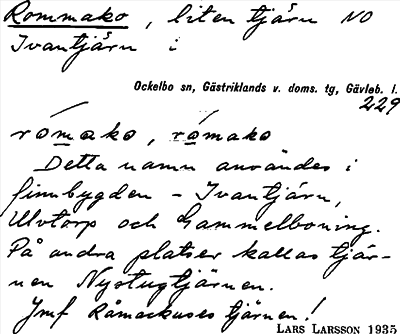 Rommako, liten tjärn NO
Ivantjärn i
Ockelbo sn, Gästriklands v. doms. tg, Gävleb. l.
229
rómako, rámako
Detta namn användes i
finnbygden – Ivantjärn,
Ulvtorp och Gammelboning.
På andra platser kallas tjär-
nen Nystugtjärnen.
Jmf Råmackuses tjärnen!
LARS LARSSON 1935